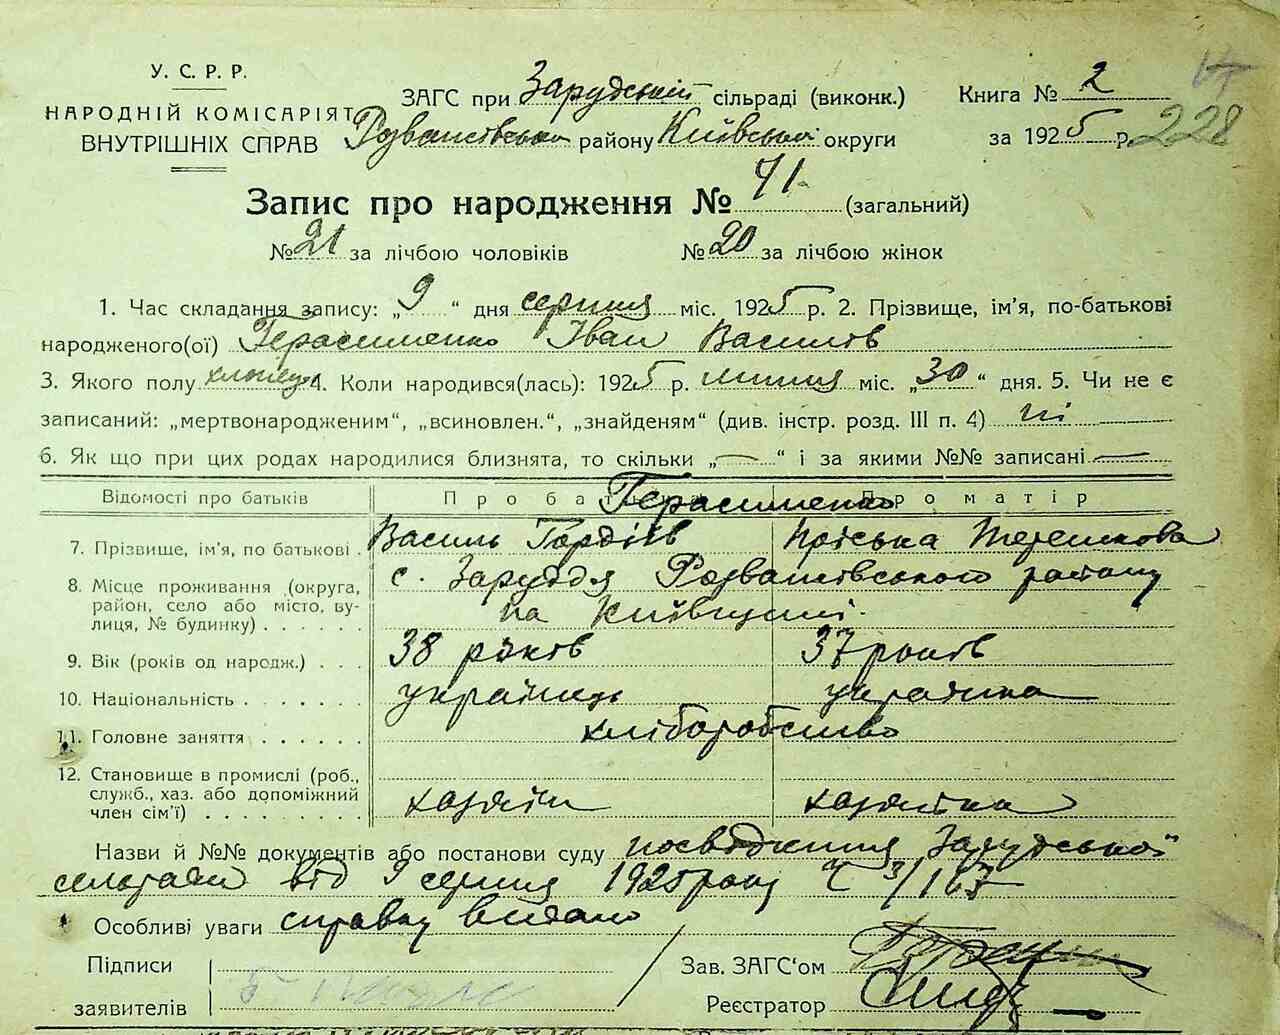 У. С. Р. Р.
НАРОДНІЙ КОМІСАРІЯТ
ВНУТРІШНІХ СПРАВ
ЗАГС при Зарудській сільраді (виконк.)
Розважівського району Київської округи
Книга № 2
за 1925 р. 228
Запис про народження № 41 (загальний)
№ 21 за лічбою чоловіків № 20 за лічбою жінок
1. Час складання запису: „9“ дня серпня міс. 1925 р. 2. Прізвище, ім’я, по-батькові
народженого(ої) Герасименко Іван Василів
3. Якого полу хлопець 4. Коли народився(лась): 1925 р. липня міс. „30“ дня. 5. Чи не є
записаний: „мертвонародженим“, „всиновлен.“, „знайденям“ (див. інстр. розд. III п. 4) ні
6. Як що при цих родах народилися близнята, то скільки „—“ і за якими №№ записані —
Відомості про батьків Про батька Про матір
Герасименко
7. Прізвище, ім’я, по батькові . Василь Гордіїв Пріська Терешкова
8. Місце проживання (округа, район, село або місто, вулиця, № будинку) . . . . . . с. Заруддя Розважівського району
на Київщині.
9. Вік (років од народж.) . . . 38 років 37 років
10. Національність . . . . . . . українець українка
11. Головне заняття . . . . . . хліборобство
12. Становище в промислі (роб.,
служб., хаз. або допоміжний
член сім’ї) . . . . . . . . . хазяїн хазяйка
Назви й №№ документів або постанови суду посвідчення Зарудської
сельради від 9 серпня 1925 року Ч 3/167
Особливі уваги справку видано
Підписи
заявителів
Зав. ЗАГС‘ом
Реєстратор